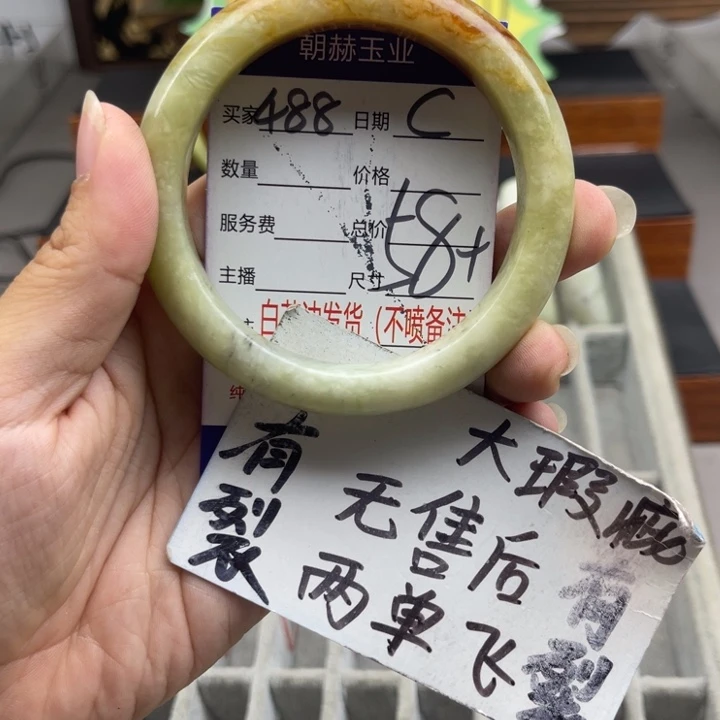 朝赫玉业
买家 488 日期 C
数量 价格
服务费 总价
主播 尺寸 58+
发货(不喷备注
纯
有裂
大瑕疵
无售后
两单飞
有裂